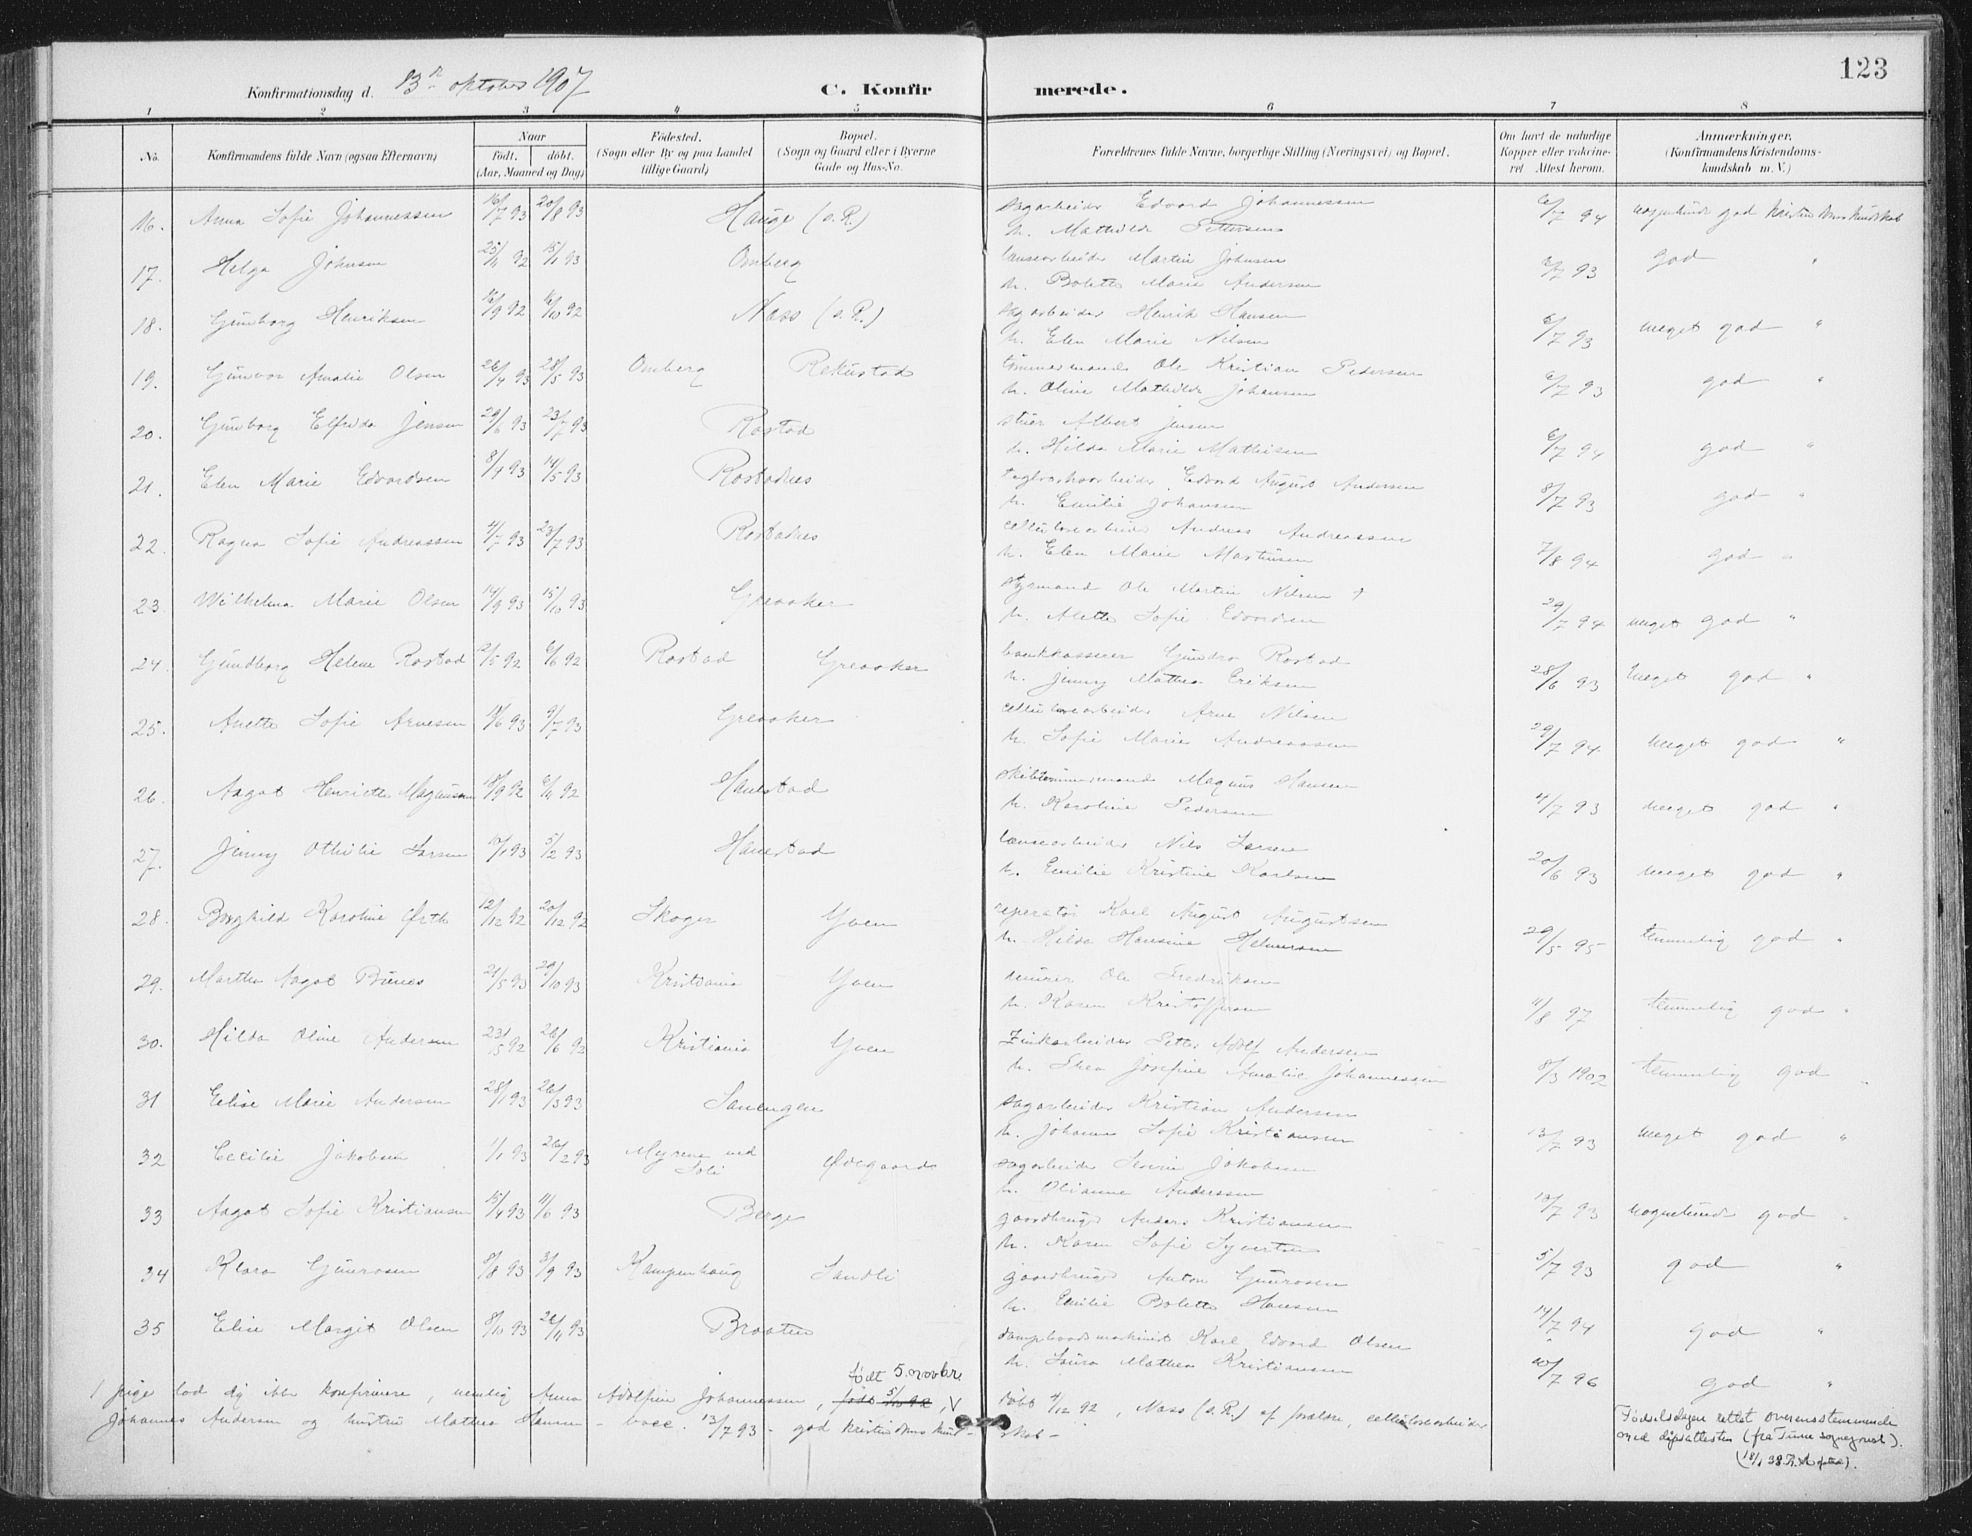 123
Konfirmationsdag d. 13de oktober 1907
C. Konfirmerede.
1 2 3 4 5 6 7 8
No.
Konfirmandens fulde Navn (ogsaa Efternavn)
Naar
födt. döbt.
(Aar, Maaned og Dag)
Födested.
(Sogn eller By og paa Landet
tillige Gaard)
Bopæl.
(Sogn og Gaard eller i Byerne
Gade og Hus-No.
Forældrenes fulde Navne, borgerlige Stilling (Næringsvei) og Bopæl.
Om havt de naturlige
Kopper eller vaccine-
ret Attest herom.
Anmærkninger.
(Konfirmandens Kristendoms-
kundskab m. V.)
16. Anna Sofie Johannessen 16/7 93 20/8 93 Hauge (o. R.) sagarbeider Edvard Johannessen 6/7 94 nogenlunde god kristendomskundskab
h. Mathilde Pettersen
17. Helga Johnsen 25/11 92 15/1 93 Omberg lensearbeider Martin Johnsen 93 god "
h. Bolette Marie Andersen
18. Gunborg Henriksen 92 92 Næss (o. R.) sagarbeider Henrik Hansen 6/7 93 meget god "
h. Elen Marie Nilsen
19. Gunvor Amalie Olsen 26/4 93 28/5 93 Omberg Rekustad tömmermand Ole Kristian Pedersen 6/7 93 god "
h. Oline Mathilde Johansen
20. Gunborg Elfrida Jensen 29/6 93 23/7 93 Rostad Albert Jensen 6/7 94 god "
h. Hilda Marie Mathisen
21. Elen Marie Edvardsen 8/4 93 14/5 93 Rostadnes teglverksarbeider Edvard August Andersen 8/7 93 god "
h. Emilie Johansen
22. Ragna Sofie Andreassen 4/7 93 23/7 93 Rostadnes cellulosearbeider Andreas Andreassen 7/8 94 god "
h. Elen Marie Martinsen
23. Wilhelma Marie Olsen 14/9 93 15/10 93 Greaaker styrmand Ole Martin Nilsen † 29/7 94 meget god "
h. Alette Sofie Edvardsen
24. Gundborg Helene Rostad 2/5 92 6/6 92 Rostad Greaaker bankkasserer Gunder Rostad 28/6 93 meget god "
h. Jenny Mathea Eriksen
25. Anette Sofie Arnesen 93 9/7 93 Greaaker cellulosearbeider Arne Nilsen 29/7 94 meget god "
h. Sofie Marie Andreassen
26. Aagot Henriette Magnusen 18/9 92 92 Hanestad skibstømmermand Magnus Hansen 4/7 93 meget god "
h. Karoline Pedersen
27. Jenny Othilie Larsen 93 5/2 93 Hanestad lensearbeider Nils Larsen 20/6 93 meget god "
h. Emilie Kristine Karlsen
28. Borghild Karoline Ørtb 12/12 92 20/12 92 Skoger Yven reperatør Karl August Augustsen 29/5 95 temmelig god "
h. Hilda Hansine Helmersen
29. Marthea Aagot Bunes 21/5 93 29/10 93 Kristiania Yven murer Ole Fredriksen 11/8 97 temmelig god "
h. Karen Kristoffersen
30. Hilda Oline Andersen 23/5 92 26/6 92 Kristiania Yven Zinkarbeider Petter Adolf Andersen 8/3 1902 temmelig god "
h. Thea Josefine Amalie Johannessen
31 Elise Marie Andersen 28/1 93 26/3 93 Sanengen sagarbeider Kristian Andersen 13/7 93 meget god "
h. Johanne Sofie Kristiansen
32 Cecilie Jakobsen 1/1 93 26/2 93 Myrene ved Soli Ødegaard sagarbeider Severin Jakobsen 13/7 93 nogenlunde god "
h. Olianne Andersen
33 Aagot Sofie Kristiansen 15/4 93 11/6 93 Berge gaardbruger Anders Kristiansen 5/7 93 god "
h. Karen Sofie Syvertsen
34 Klara Gunrosen 8/8 93 3/9 93 Kampenhaug Sandli gaardbruger Anton Gunrosen 14/7 94 god "
h. Emilie Bolette Hansen
35 Elise Margit Olsen 8/10 93 26/11 93 Braaten dampbaadsmaskinist Karl Edvard Olsen 10/7 96 god "
h. Laura Mathea Kristiansen
født 5. novbre.
1 pige lod sig ikke konfirmere, nemlig Anna Adolfine Johannessen, født 5/10 92, V døbt 4/12 92, Næss (o. R.) af foreldre, cellulosearbeider
Johannes Andersen og hustru Mathea Hansen - vacc. 13/7 93 - god kristendomskund-skab -
Fødselsdagen rettet overensstemmende
med dåpsattesten (fra Tune sogneprest).
(18/1 38